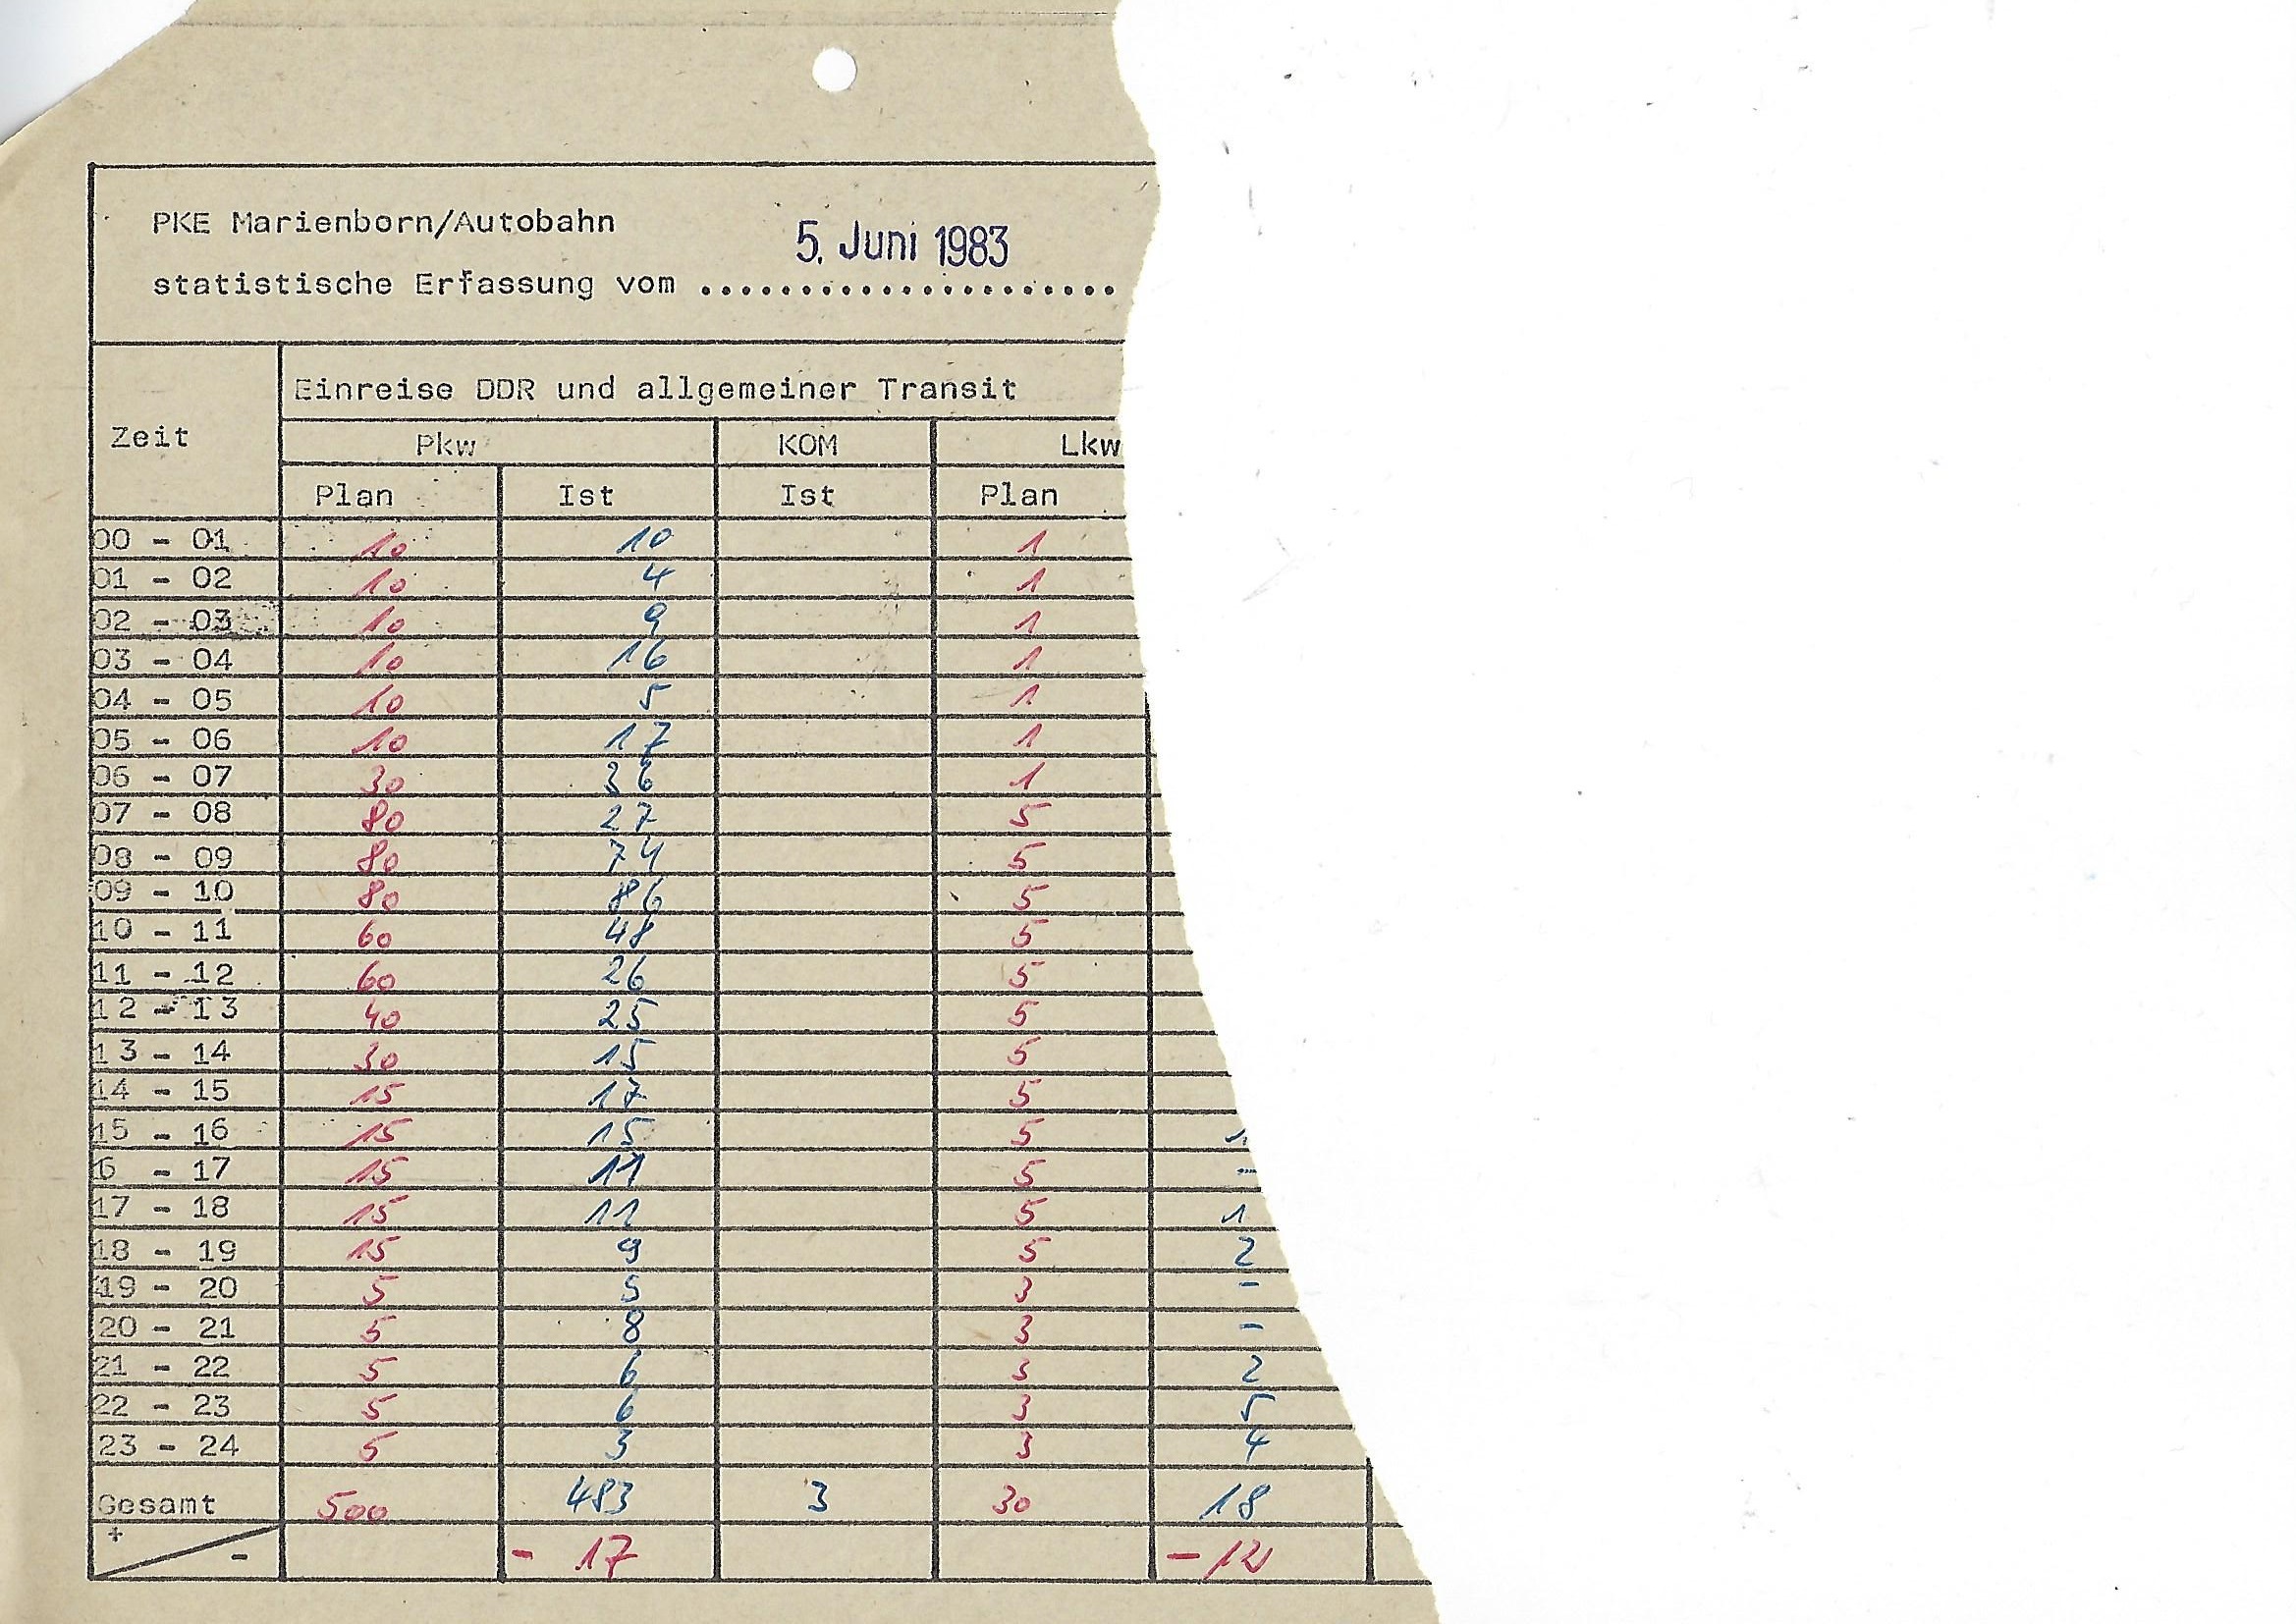 PKE Marienborn/Autobahn
5. Juni 1983
statistische Erfassung vom .....................
Einreise DDR und allgemeiner Transit
Zeit Pkw KOM Lkw
Plan Ist Ist Plan
00 - 01 10 10 1
01 - 02 10 4 1
02 - 03 10 9 1
03 - 04 10 16 1
04 - 05 10 5 1
05 - 06 10 17 1
06 - 07 30 36 1
07 - 08 80 27 5
08 - 09 80 74 5
09 - 10 80 86 5
10 - 11 60 48 5
11 - 12 60 26 5
12 - 13 40 25 5
13 - 14 30 15 5
14 - 15 15 17 5
15 - 16 15 15 5 1
6 - 17 15 11 5 -
17 - 18 15 11 5 1
18 - 19 15 9 5 2
19 - 20 5 5 3 -
20 - 21 5 8 3 -
21 - 22 5 6 3 2
22 - 23 5 6 3 5
23 - 24 5 3 3 4
Gesamt 500 483 3 30 18
+ - - 17 - 12